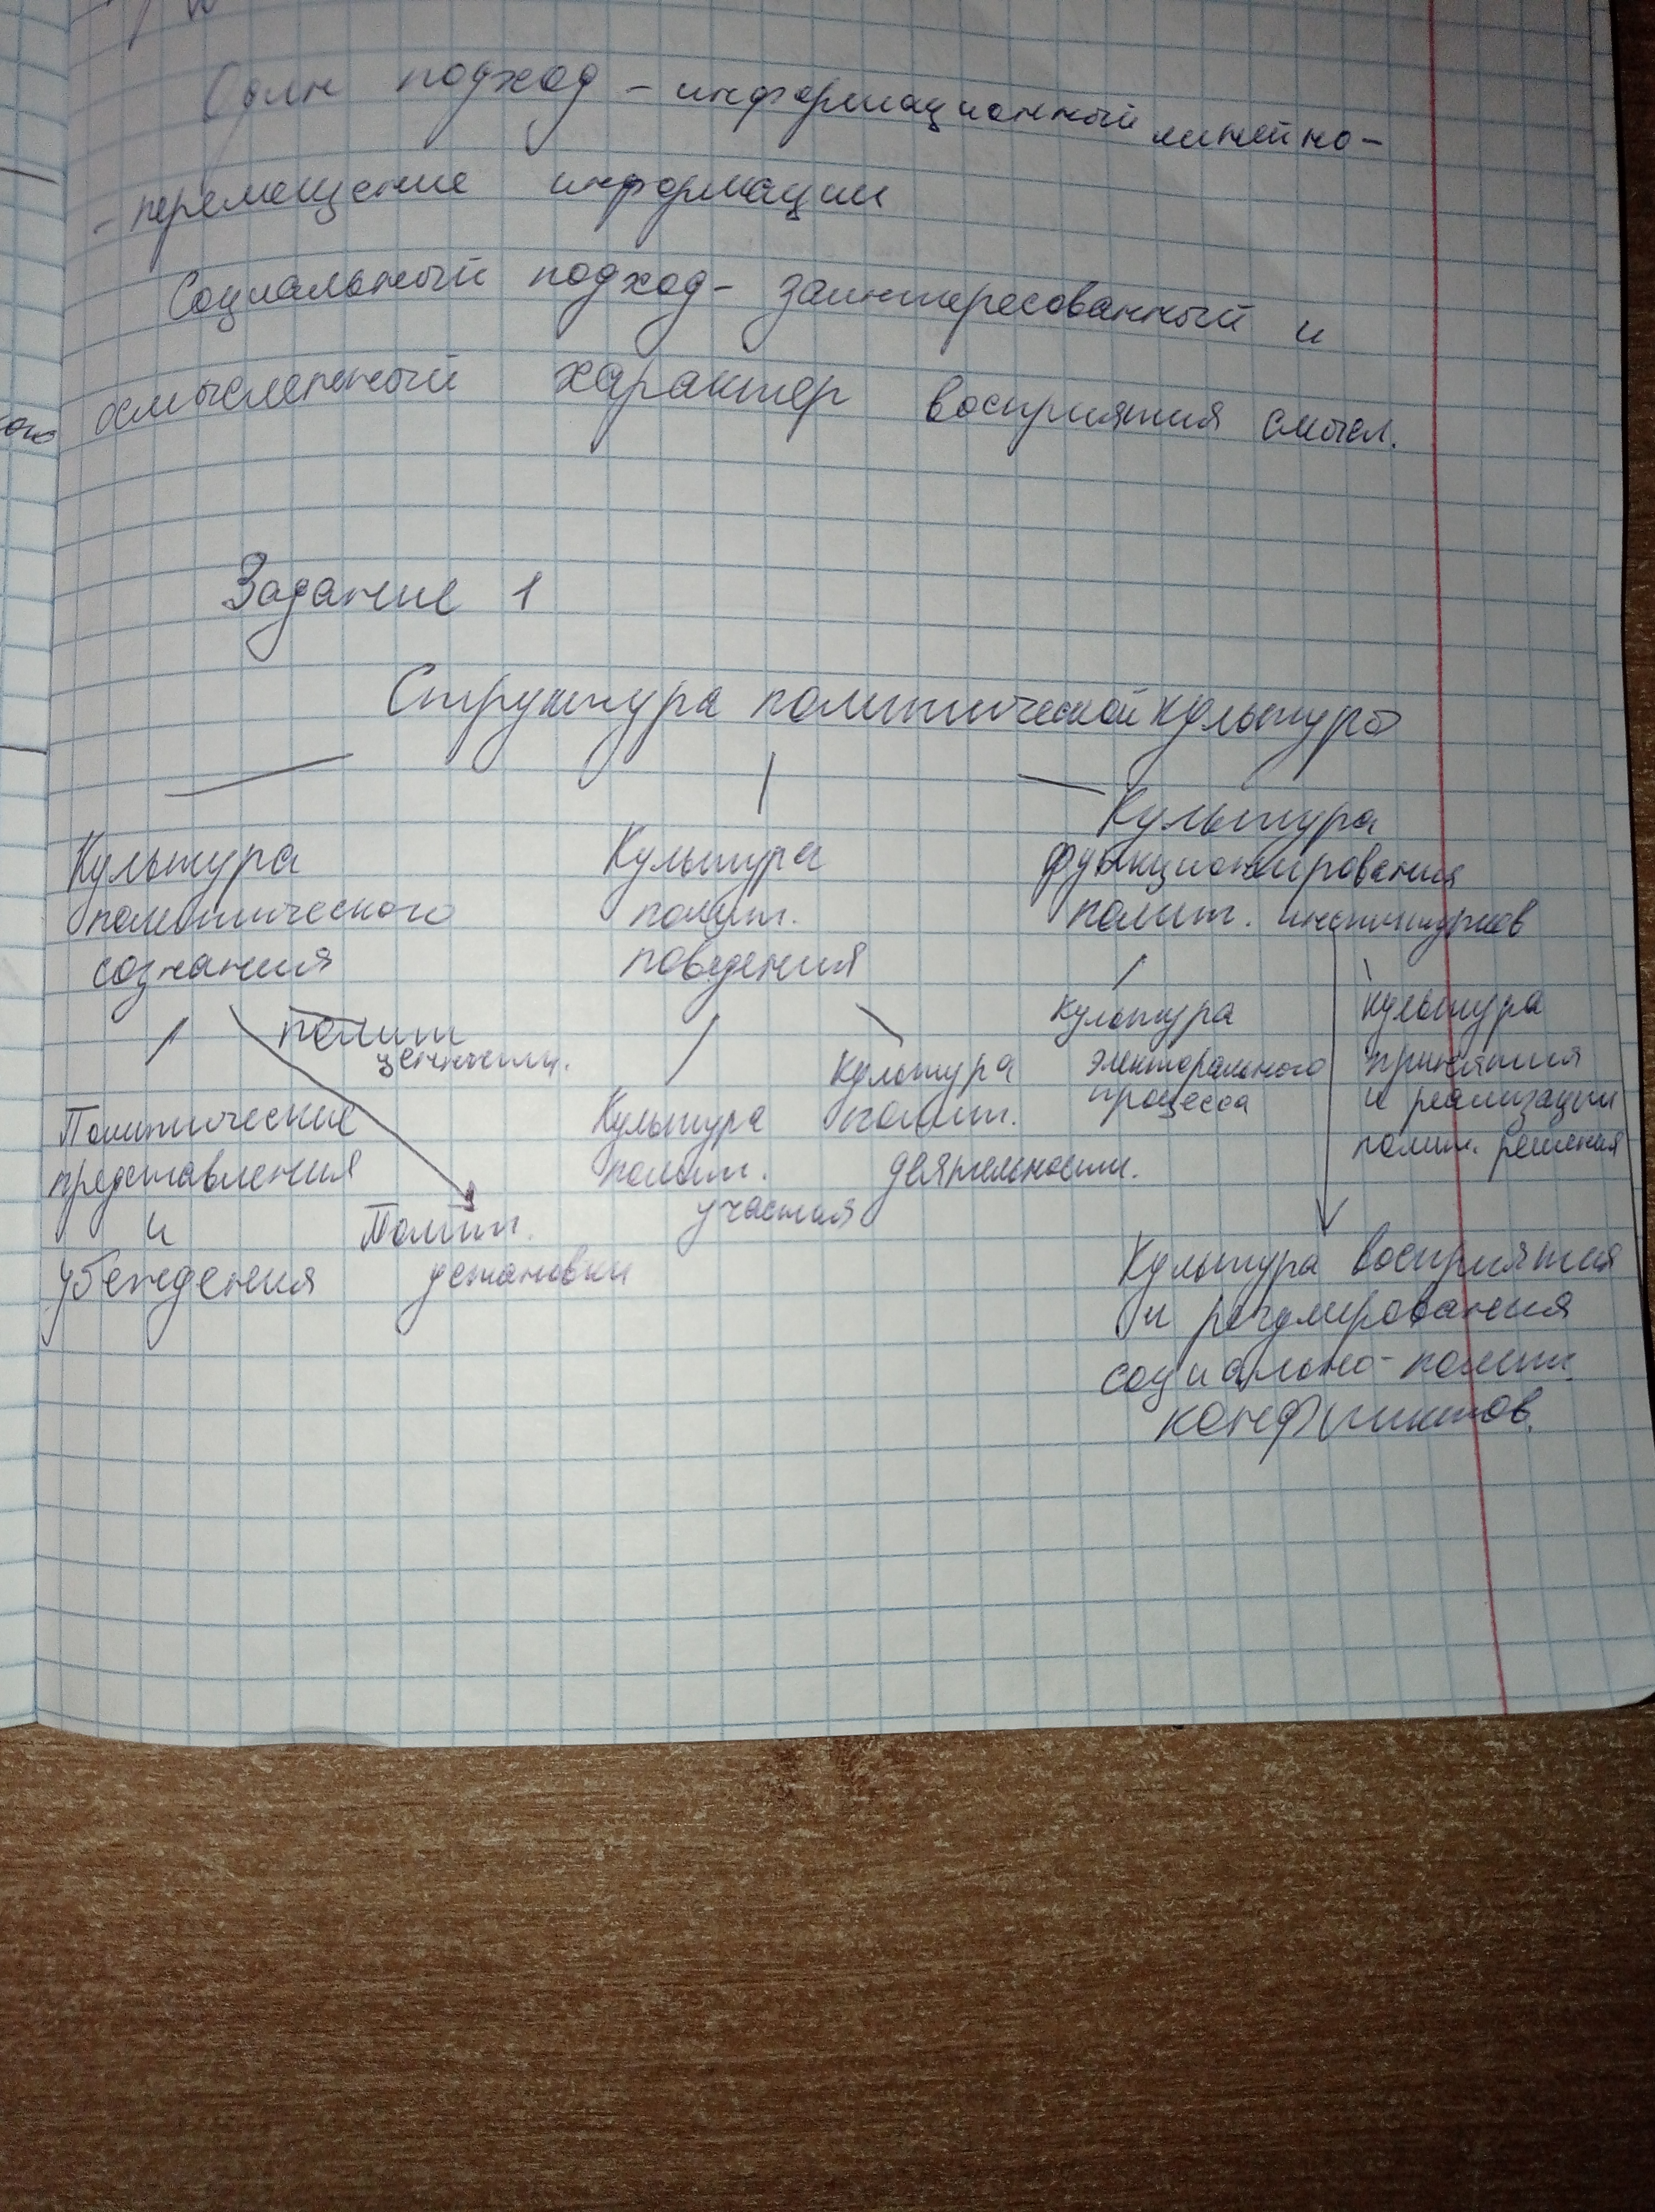 подход - информационный линейно-
- перемещение информации
Социальный подход - заинтересованный и
осмысленный характер восприятия смысл.
Задание 1
Структура политической культуры
Культура
политического
сознания
Культура
полит.
поведения
Культура
функционирования
полит. институтов
Политические
представления
и
убеждения
полит
ценности.
Полит.
установки
Культура
полит.
участия
Культура
полит.
деятельности.
Культура
электорального
процесса
Культура
принятия
и реализации
полит. решения
Культура восприятия
и регулирования
социально-полит.
конфликтов.